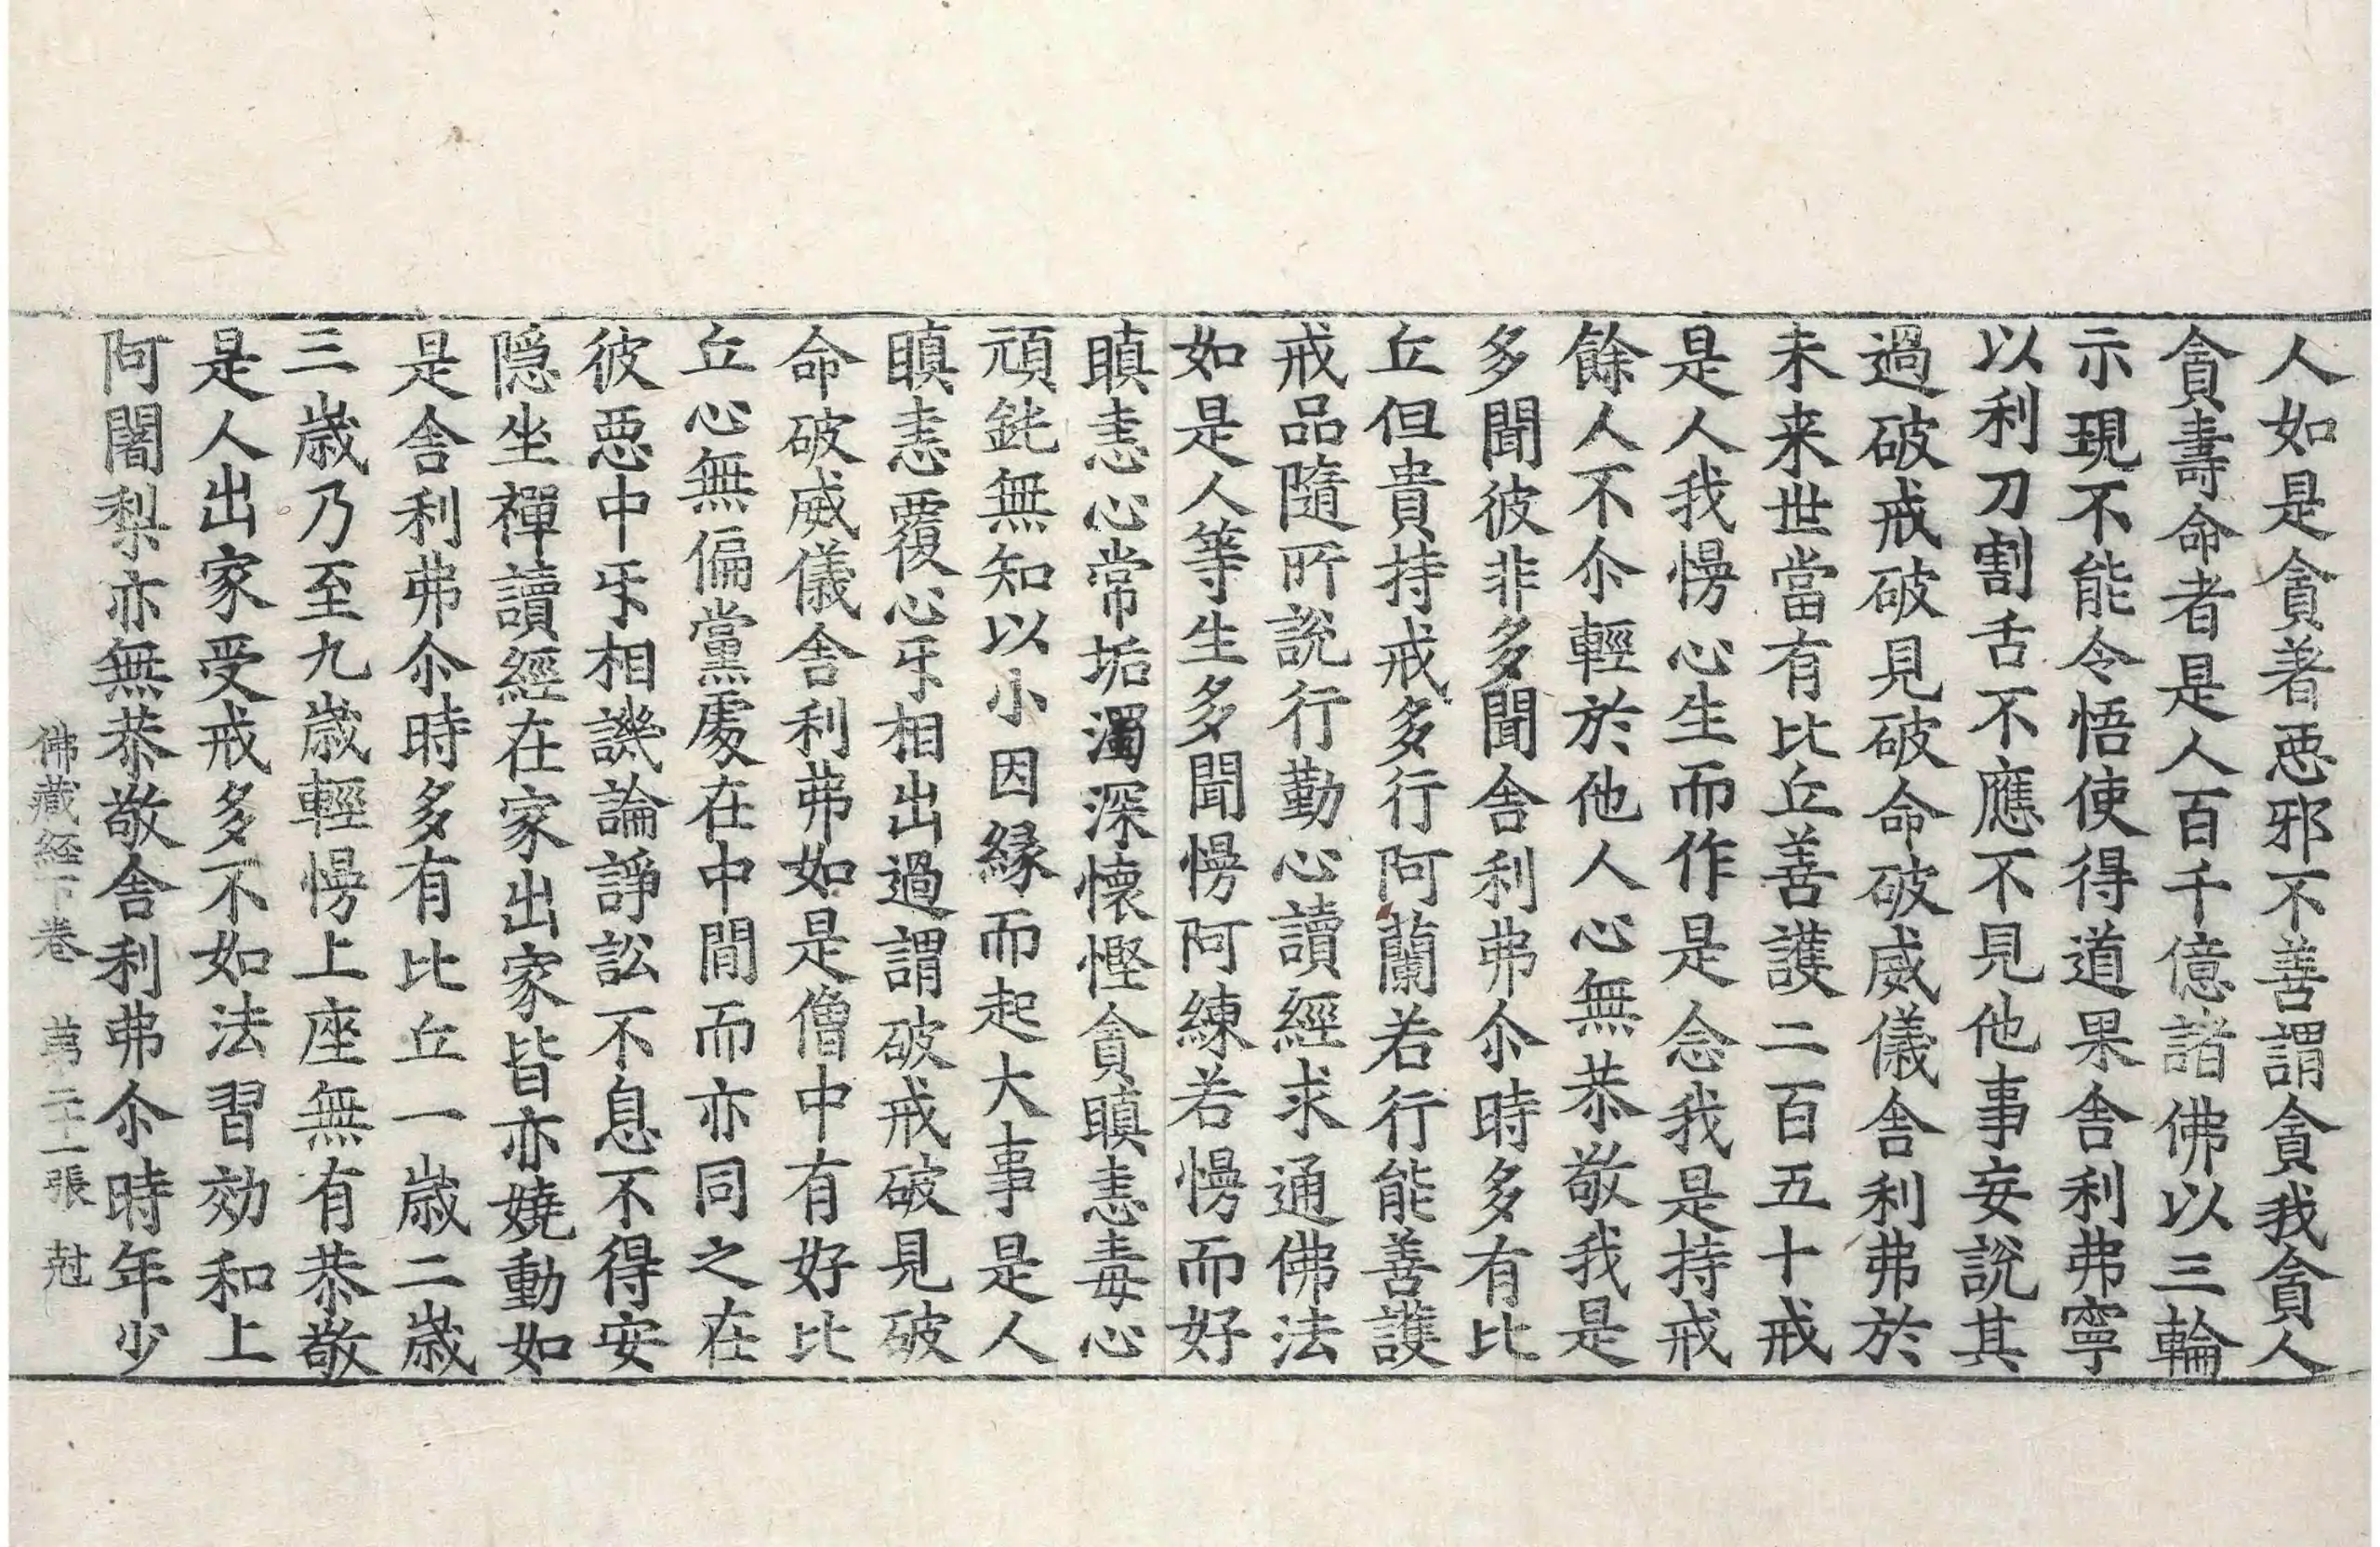 人如是貪著惡邪不善謂貪我貪人
貪壽命者是人百千億諸佛以三輪
示現不能令悟使得道果舍利弗寧
以利刀割舌不應不見他事妄說其
過破戒破見破命破威儀舍利弗於
未来世當有比丘善護二百五十戒
是人我慢心生而作是念我是持戒
餘人不尒輕於他人心無恭敬我是
多聞彼非多聞舍利弗尒時多有比
丘但貴持戒多行阿蘭若行能善護
戒品隨所說行勤心讀經求通佛法
如是人等生多聞慢阿練若慢而好
瞋恚心常垢濁深懷慳貪瞋恚毒心
頑鈍無知以小因緣而起大事是人
瞋恚覆心㸦相出過謂破戒破見破
命破威儀舍利弗如是僧中有好比
丘心無偏黨處在中間而亦同之在
彼惡中㸦相譏論諍訟不息不得安
隠坐禪讀經在家出家皆亦嬈動如
是舍利弗尒時多有比丘一歲二歲
三歲乃至九歲輕慢上座無有恭敬
是人出家受戒多不如法習効和上
阿闍梨亦無恭敬舍利弗尒時年少
佛藏経下卷 苐二十一張 尅